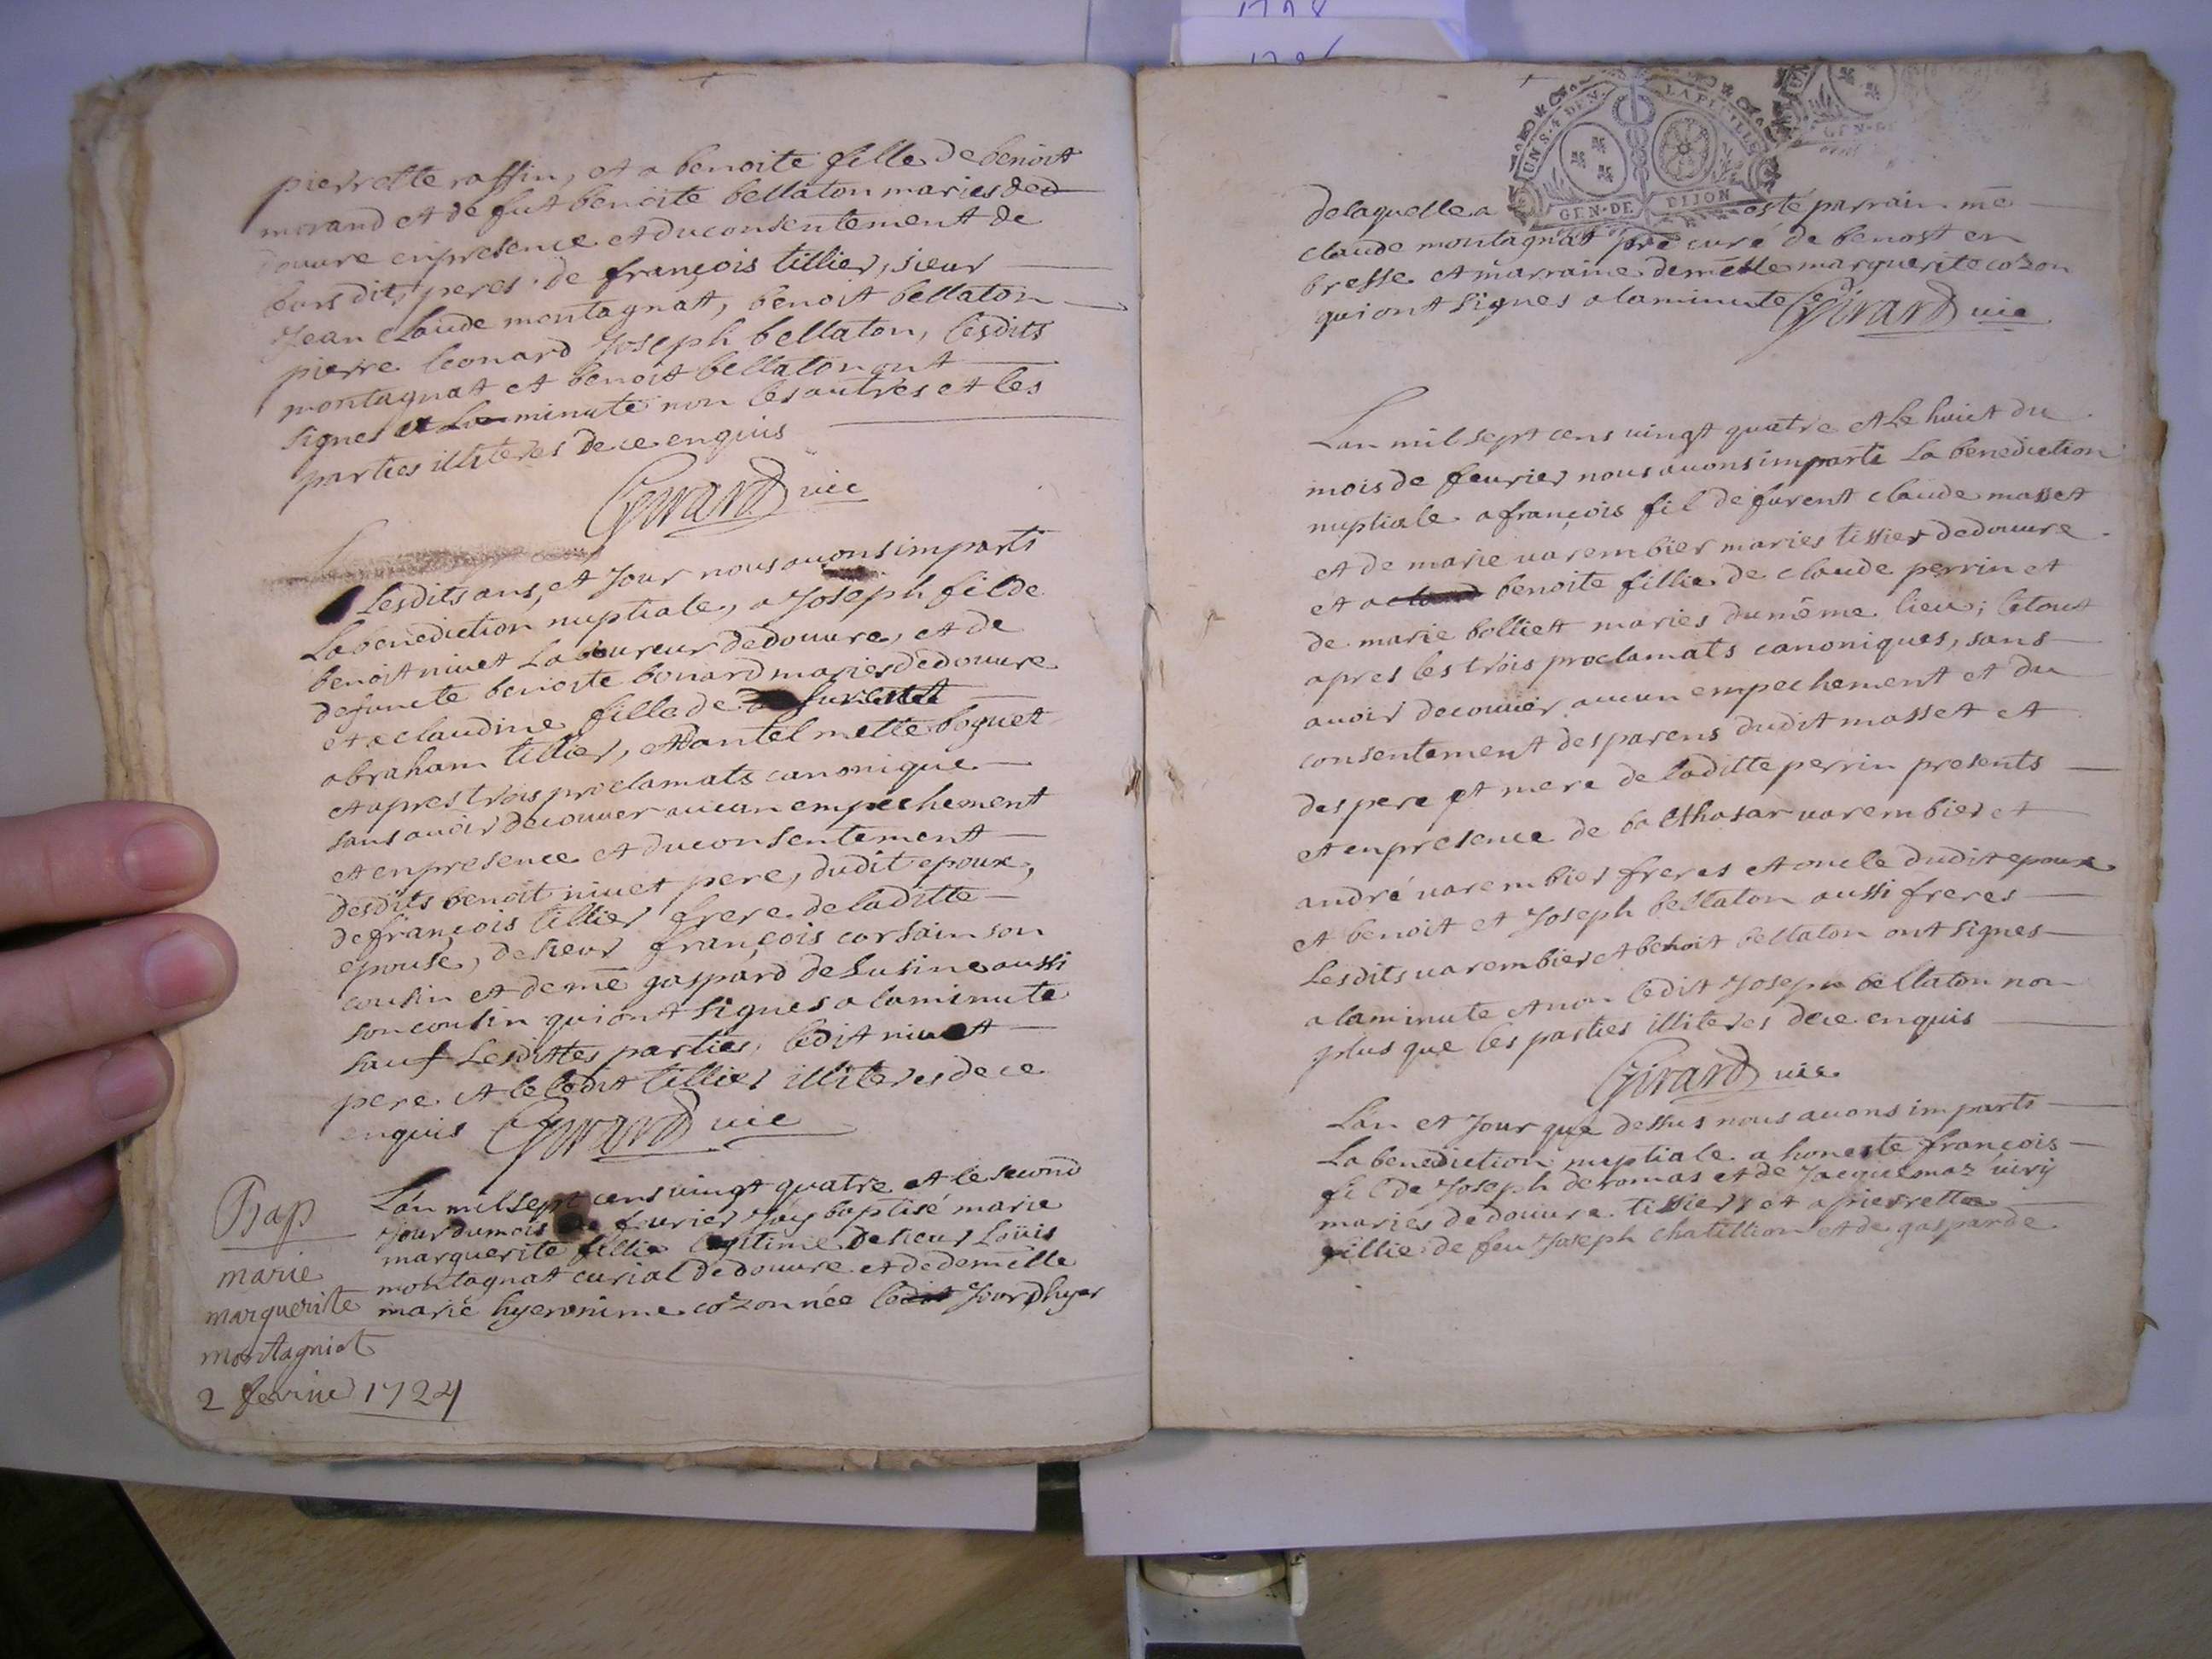 1728
pierrette raffin, et a benoite fille de benoit
morand et de fut benoite bellaton maries de d
douure en presence et du consentement de
leurs dits peres de françois tillier, sieur
Jean claude montagnat, benoit bellaton
pierre leonard Joseph bellaton, lesdits
montagnat et benoit bellaton ont
signes a la minute non les autres et les
parties illiteres de ce enquis
Girard vic
Lesdits ans, et Jour nous auons imparti
La benediction nuptiale, a Joseph fil de
benoit niuet Laboureur de douure, et de
defuncte benoite bonard maries de douure
et a claudine fille de furent
abraham tillier, et d'antelmette boguet
et apres trois proclamats canonique
sans auoir decouuer aucun empechement
et en presence et du consentement
desdits benoit niuet pere, dudit epoux,
de françois tillier frere de laditte
epouse, de sieur françois corsain son
cousin et de me gaspard de Lusine aussi
son cousin qui ont signes a la minute
sauf Lesdittes parties, ledit niuet
pere et le ledit tillier illiteres de ce
enquis Girard vic
Bap
marie
marguerite
montagniat
2 fevrier 1724
L'an mil sept cens uingt quatre et le second
Jour du mois de feurier J'ay baptisé marie
marguerite fillie legitime de sieur Loüis
montagnat curial de douure et de demelle
marie hyeronime cozon née ledit Jour d'hyer
UN S. 4 DE N. LA FEUILLE
GEN. DE DIJON
GEN. DE
de laquelle a esté parrain me
claude montagnat pre curé de benost en
bresse et marraine demelle marguerite cozon
qui ont signes a la minute Girard vic
L'an mil sept cens uingt quatre et Le huict du
mois de feurier nous auons imparti La benediction
nuptiale a françois fil de furent claude masset
et de marie uarembier maries tissier de douure
et a benoite fillie de claude perrin et
de marie bolliett maries du même lieu; le tout
apres les trois proclamats canoniques, sans
auoir decouuier aucun empechement et du
consentement des parens dudit masset et
des pere et mere de laditte perrin presents
et en presence de balthasar uarembier et
andré uarembier freres et oncle dudit epoux
et benoit et Joseph bellaton aussi freres
Lesdits uarembier et benoit bellaton ont signes
a la minute et non ledit Joseph bellaton non
plus que les parties illiteres de ce enquis
Girard vic
L'an et Jour que dessus nous auons imparti
La benediction nuptiale a honeste françois
fil de Joseph deromas et de Jacquemaz uiry
mariés de douure tissiers et a pierrette
fillie de feu Joseph chatillion et de gasparde